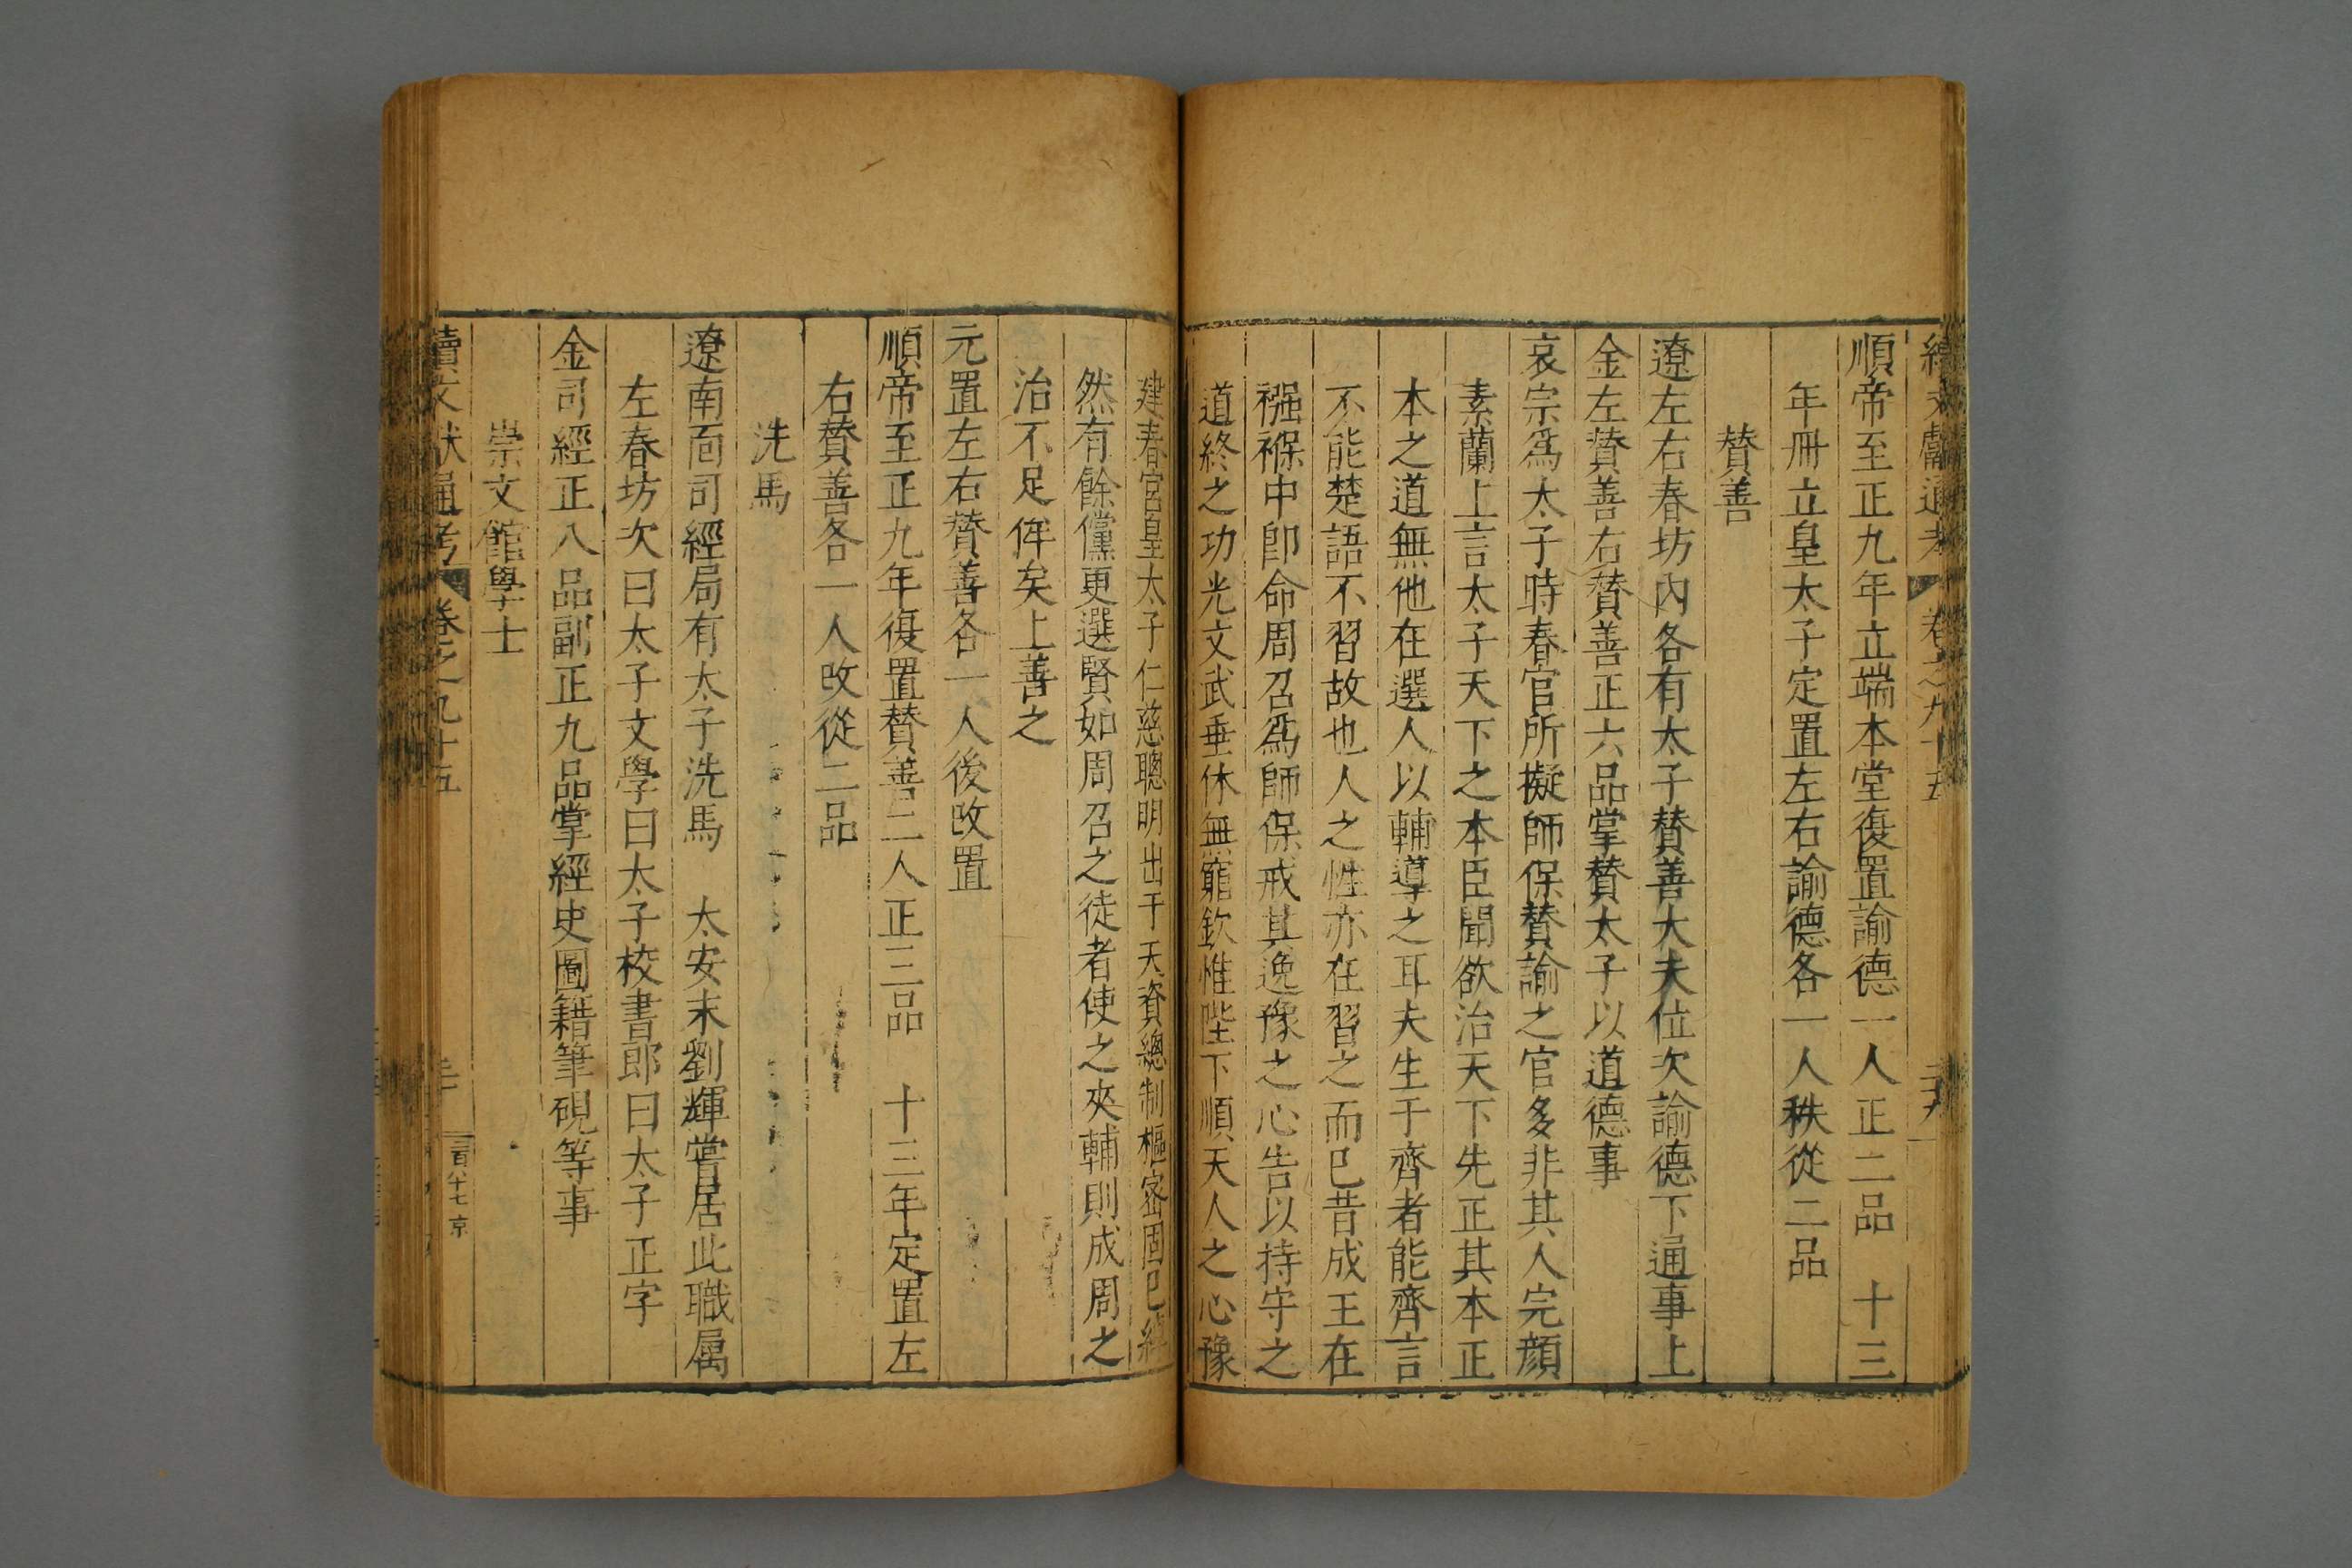 續文獻通考 卷之九十五
順帝至正九年立端本堂復置諭德一人正二品 十三
年冊立皇太子定置左右諭德各一人秩從二品
賛善
遼左右春坊內各有太子賛善大夫位次諭德下通事上
金左賛善右賛善正六品掌賛太子以道德事
哀宗爲太子時春官所擬師保賛諭之官多非其人完顔
素蘭上言太子天下之本臣聞欲治天下先正其本正
本之道無他在選人以輔導之耳夫生于齊者能齊言
不能楚語不習故也人之性亦在習之而巳昔成王在
襁褓中卽命周召爲師保戒其逸豫之心告以持守之
道終之功光文武垂休無窮欽惟陛下順天人之心豫
建春宮皇太子仁慈聰明出于天資總制樞密固巳綽
然有餘儻更選賢如周召之徒者使之夾輔則成周之
治不足侔矣上善之
元置左右賛善各一人後改置
順帝至正九年復置賛善二人正三品 十三年定置左
右賛善各一人改從二品
洗馬
遼南面司經局有太子洗馬 太安末劉輝嘗居此職属
左春坊次曰太子文學曰太子校書郎曰太子正字
金司經正八品副正九品掌經史圖籍筆硯等事
崇文館學士
續文獻通考 卷之九十五 三十 三百八十七 京